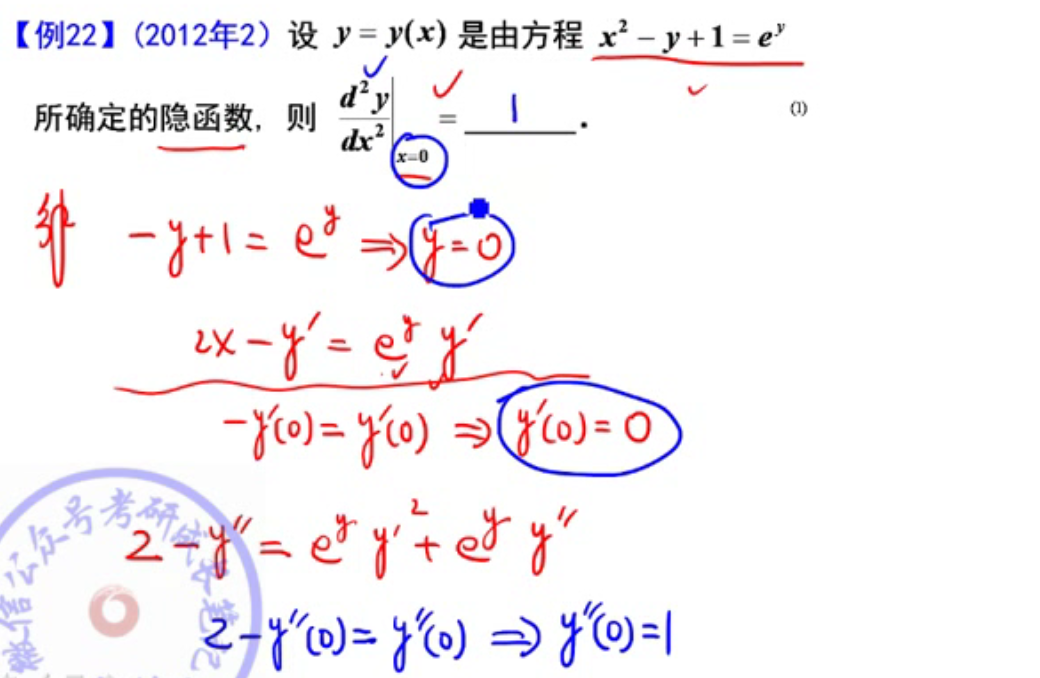 【例22】(2012年2) 设 y = y(x) 是由方程 x² − y + 1 = eʸ
所确定的隐函数, 则 d²y/dx² |ₓ₌₀ = 1 .
(1)
解 −y+1 = eʸ ⇒ y=0
2x − y′ = eʸ y′
−y′(0) = y′(0) ⇒ y′(0) = 0
2 − y″ = eʸ y′² + eʸ y″
2 − y″(0) = y″(0) ⇒ y″(0) = 1
微信公众号考研